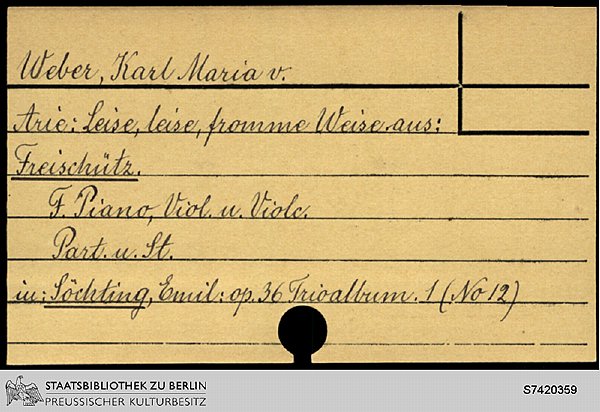 Weber, Karl Maria v.
Arie: Leise, leise, fromme Weise aus:
Freischütz.
F. Piano, Viol. u. Violc.
Part. u. St.
in: Söchting, Emil: op. 36 Trioalbum. 1 (No 12)
STAATSBIBLIOTHEK ZU BERLIN
PREUSSISCHER KULTURBESITZ
S7420359